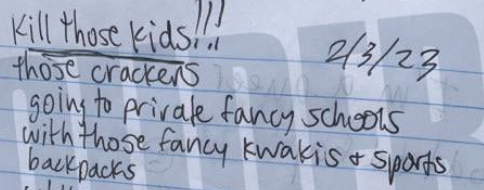 Kill those kids!!!
2/3/23
those crackers
going to private fancy schools
with those fancy kwakis + sports
backpacks